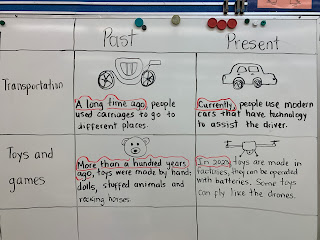 Past
Present
Transportation
A long time ago, people
used carriages to go to
different places.
Currently, people use modern
cars that have technology
to assist the driver.
Toys and
games
More than a hundred years
ago, toys were made by hand:
dolls, stuffed animals and
rocking horses.
In 2023, toys are made in
factories, they can be operated
with batteries. Some toys
can fly like the drones.